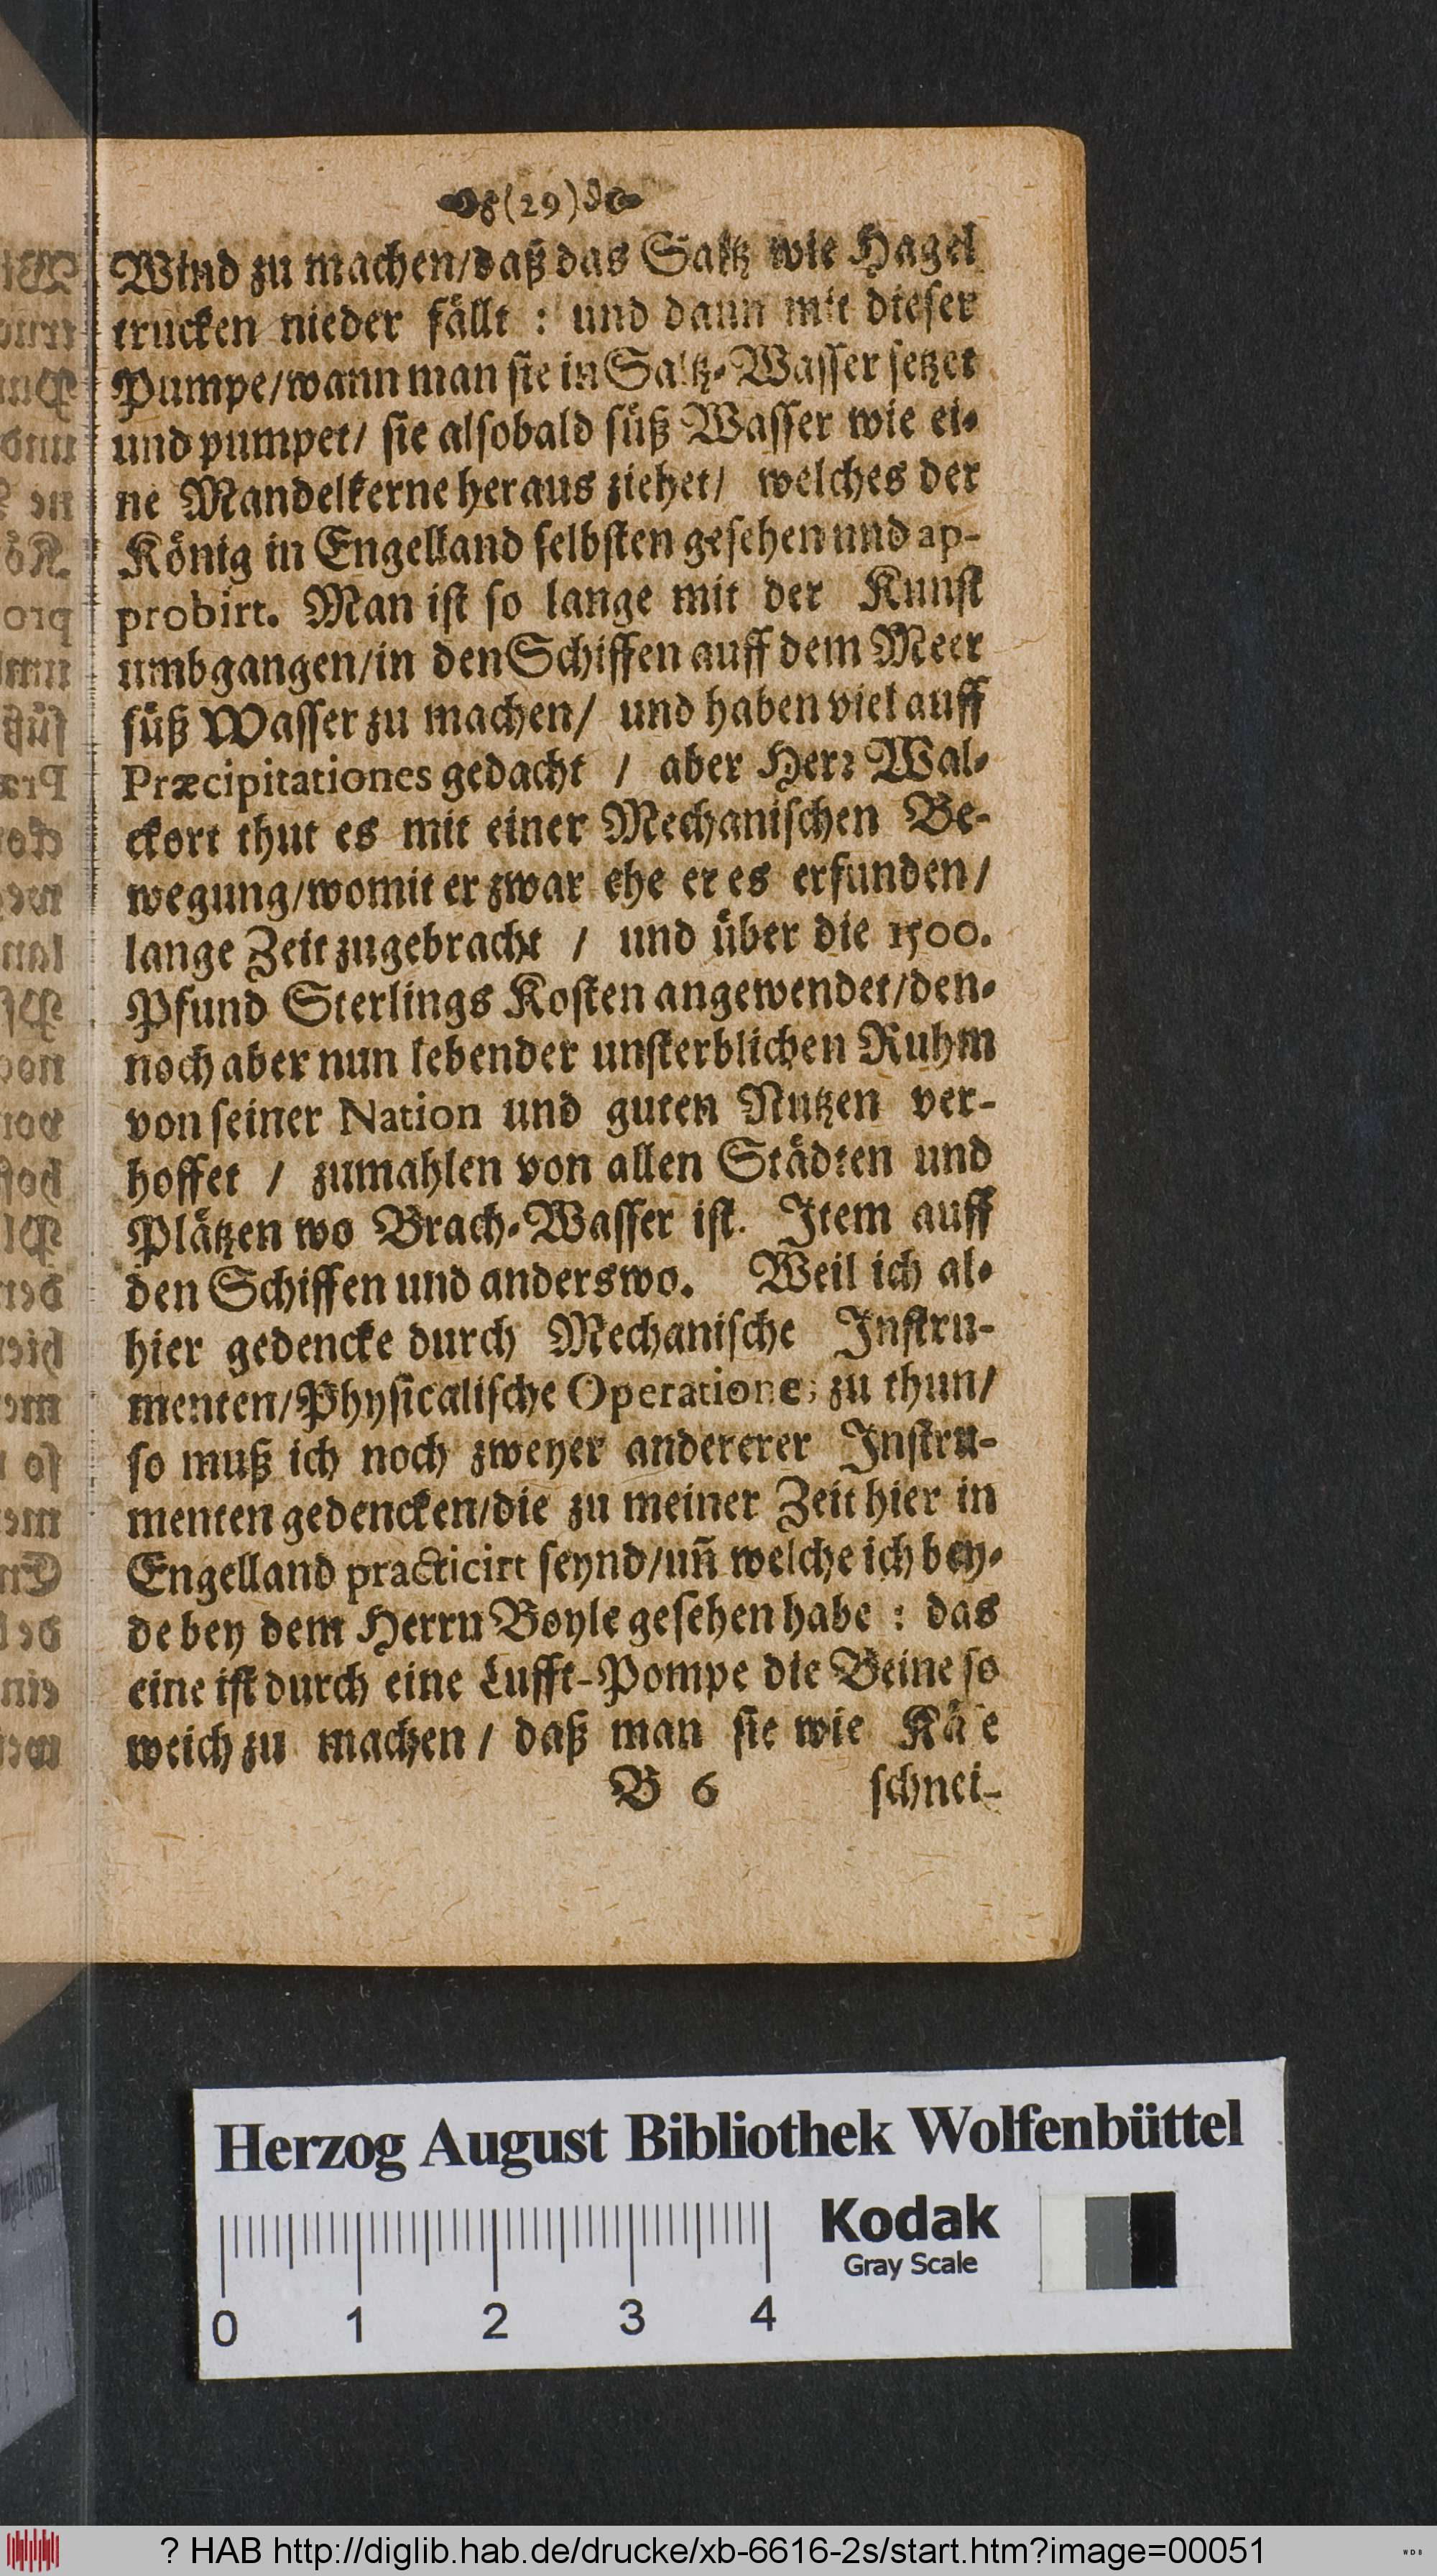 (29)
Wind zu machen/daß das Saltz wie Hagel
trucken nieder fällt : und dann mit dieser
Pumpe/wann man sie in Saltz-Wasser setzet
und pumpet/ sie alsobald süß Wasser wie ei-
ne Mandelkerne heraus ziehet/ welches der
König in Engelland selbsten gesehen und ap-
probirt. Man ist so lange mit der Kunst
umbgangen/in den Schiffen auff dem Meer
süß Wasser zu machen/ und haben viel auff
Præcipitationes gedacht / aber Herr Wal-
ckort thut es mit einer Mechanischen Be-
wegung/womit er zwar ehe er es erfunden/
lange Zeit zugebracht / und über die 1500.
Pfund Sterlings Kosten angewendet/den-
noch aber nun lebender unsterblichen Ruhm
von seiner Nation und guten Nutzen ver-
hoffet / zumahlen von allen Städten und
Plätzen wo Brach-Wasser ist. Item auff
den Schiffen und anderswo. Weil ich al-
hier gedencke durch Mechanische Instru-
menten/Physicalische Operationes zu thun/
so muß ich noch zweyer andererer Instru-
menten gedencken/die zu meiner Zeit hier in
Engelland practicirt seynd/uñ welche ich bey-
de bey dem Herrn Boyle gesehen habe : das
eine ist durch eine Lufft-Pompe die Beine so
weich zu machen / daß man sie wie Käse
B 6 schnei-
Herzog August Bibliothek Wolfenbüttel
Kodak
Gray Scale
0 1 2 3 4
? HAB http://diglib.hab.de/drucke/xb-6616-2s/start.htm?image=00051